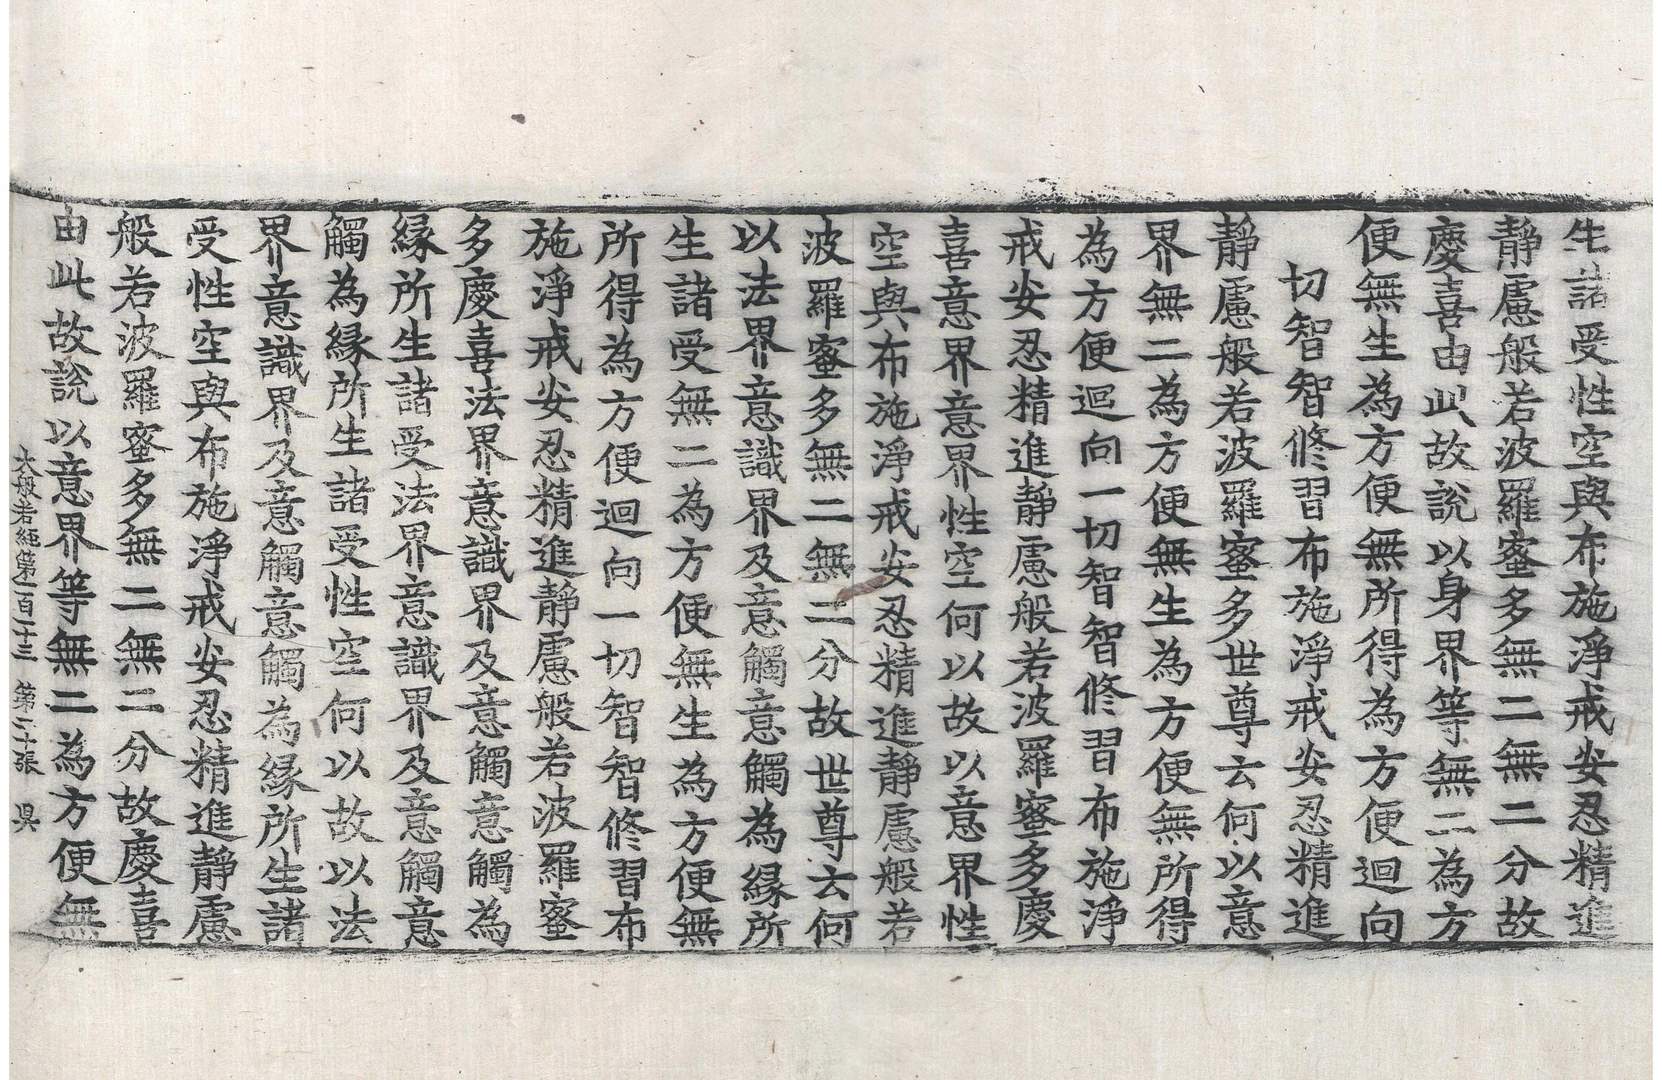 生諸受性空與布施淨戒安忍精進
靜慮般若波羅蜜多無二無二分故
慶喜由此故說以身界等無二為方
便無生為方便無所得為方便迴向
切智智修習布施淨戒安忍精進
靜慮般若波羅蜜多世尊云何以意
界無二為方便無生為方便無所得
為方便迴向一切智智修習布施淨
戒安忍精進靜慮般若波羅蜜多慶
喜意界意界性空何以故以意界性
空與布施淨戒安忍精進靜慮般若
波羅蜜多無二無二分故世尊云何
以法界意識界及意觸意觸為緣所
生諸受無二為方便無生為方便無
所得為方便迴向一切智智修習布
施淨戒安忍精進靜慮般若波羅蜜
多慶喜法界意識界及意觸意觸為
緣所生諸受法界意識界及意觸意
觸為緣所生諸受性空何以故以法
界意識界及意觸意觸為緣所生諸
受性空與布施淨戒安忍精進靜慮
般若波羅蜜多無二無二分故慶喜
由此故說以意界等無二為方便無
大般若經第一百一十三 第二十張 具